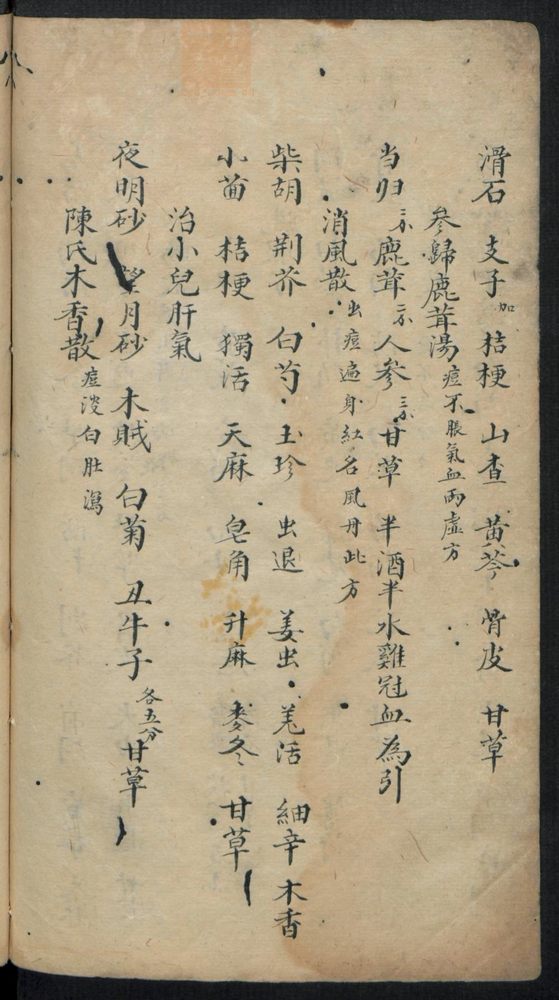 滑石 支子加 桔梗 山查 黄芩 骨皮 甘草
參歸鹿茸湯 痘不脹氣血兩虛方
当归 鹿茸 人参 甘草 半酒半水雞冠血為引
消風散 出痘遍身紅名風丹此方
柴胡 荆芥 白芍 玉珍 虫退 姜虫 羌活 細辛 木香
小茴 桔梗 獨活 天麻 皂角 升麻 麥冬 甘草
治小兒肝氣
夜明砂 望月砂 木賊 白菊 丑牛子 各五分 甘草
陳氏木香散 痘後白肚瀉